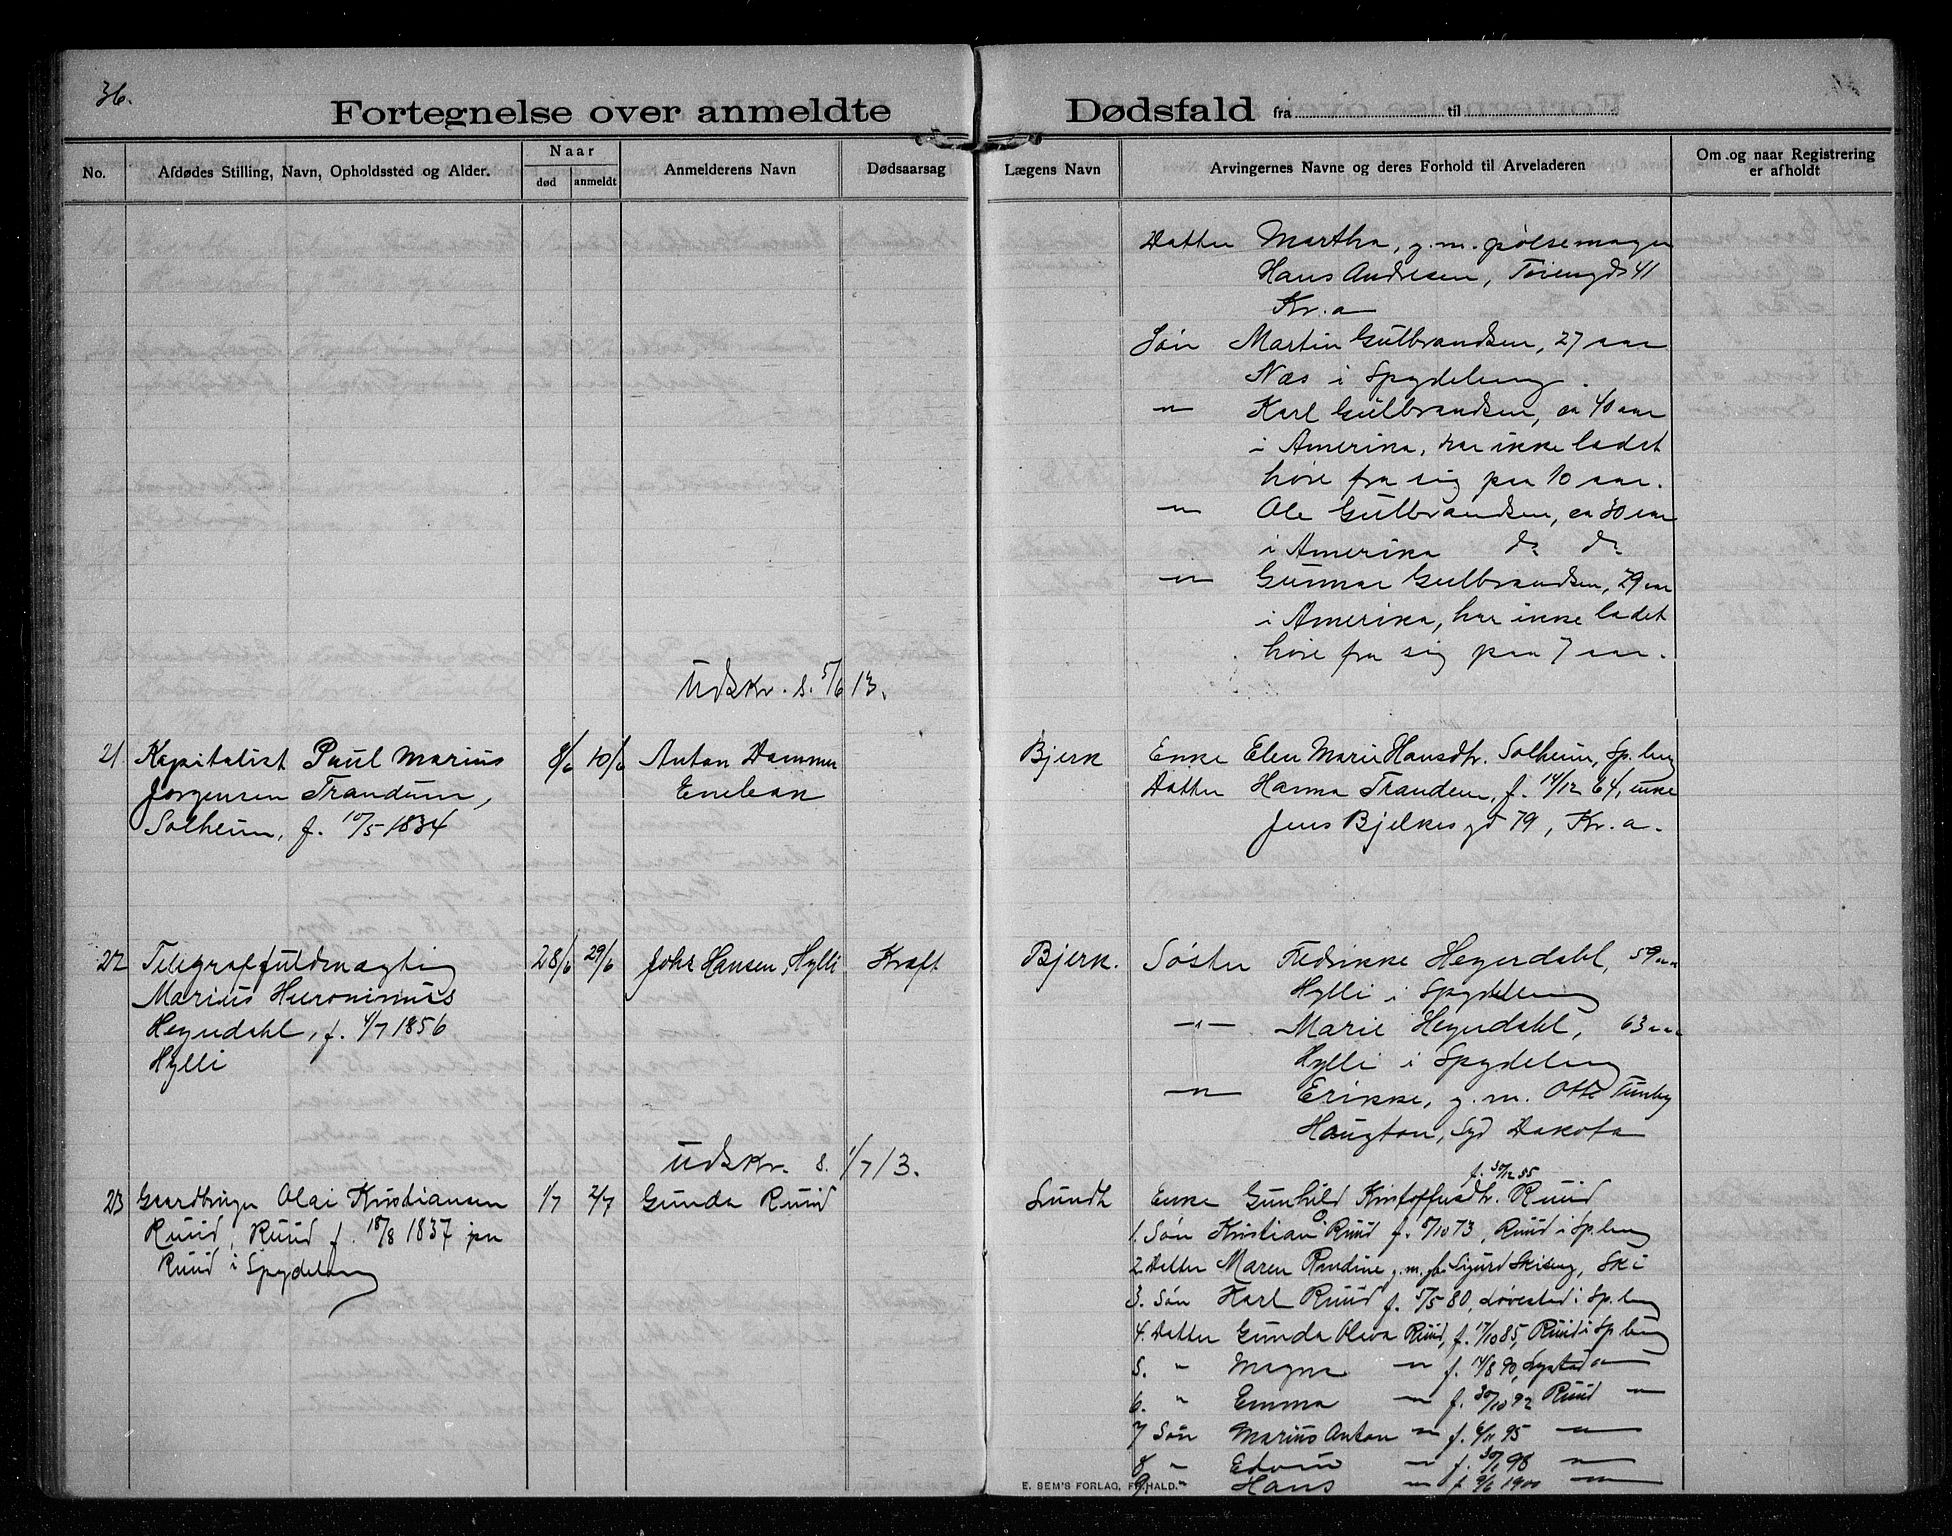 36.
Fortegnelse over anmeldte Dødsfald fra til
No.
Afdødes Stilling, Navn, Opholdssted og Alder.
Naar
død
anmeldt
Anmelderens Navn
Dødsaarsag
Lægens Navn
Arvingernes Navne og deres Forhold til Arveladeren
Om og naar Registrering
er afholdt
Datter Martha, g.m. pølsemager
Hans Andresen, Tøiengd 41
Kr.a
Søn Martin Gulbrandsen, 27 aar
Næs i Spydeberg.
— " — Karl Gulbrandsen, ca 40 aar
i Amerika, har ikke ladet
høre fra sig paa 10 aar.
— " — Ole Gulbrandsen, ca 30 aar
i Amerika do do
— " — Gunnar Gulbrandsen, 29 aar
i Amerika, har ikke ladet
høre fra sig paa 7 aar.
Udskr. s. 5/6 13.
21. Kapitalist Paul Marius 8/6 10/6 Anton Hammer Bjerk Enke Elen Marie Hansdtr. Solheim, Sp.berg
Jørgensen Trandum, Enebak Datter Hanna Trandem, f. 14/12 64, enke
Solheim, f. 10/5 1834 Jens Bjelkes gd 79, Kr.a.
22 Telegraffuldmægtig 28/6 29/6 Johs Hansen, Hylli Kræft Bjerk. Søster Fredrikke Heyerdahl, 59 aar
Marius Hieronimus Hylli i Spydeberg
Heyerdahl, f. 4/7 1856 — " — Marie Heyerdahl, 63 aar
Hylli Hylli i Spydeberg
— " — Erikke, g.m. Otto Tunby
Haugton, Syd Dakota
Udskr. s. 1/7 13.
f. 30/12 55
23 Gaardbruger Olai Kristiansen 1/7 2/7 Gunda Ruud Lundh Enke Gunhild Kristoffersdtr. Ruud
Ruud, Ruud f. 18/8 1837 paa 1. Søn Kristian O Ruud f. 5/10 73, Ruud i Sp.berg
Ruud i Spydeberg 2. Datter Maren Randine g.m. gbr Sigurd Skiseng, Ski
3. Søn Karl Ruud f. 5/5 80, Løvestad i Sp.berg
4. Datter Gunda Oliva Ruud, f. 17/10 85, Ruud i Sp.berg
5. " Magna — " — f. 14/8 90, Lystad — " —
6. " Emma — " — f. 30/10 92 Ruud — " —
7 Søn Marius Anton — " — f. 6/11 95 — " —
8 " Edvin — " — f. 30/1 98 — " —
9. " Hans — " — f 9/6 1900 — " —
E. SEM'S FORLAG, FR.HALD.